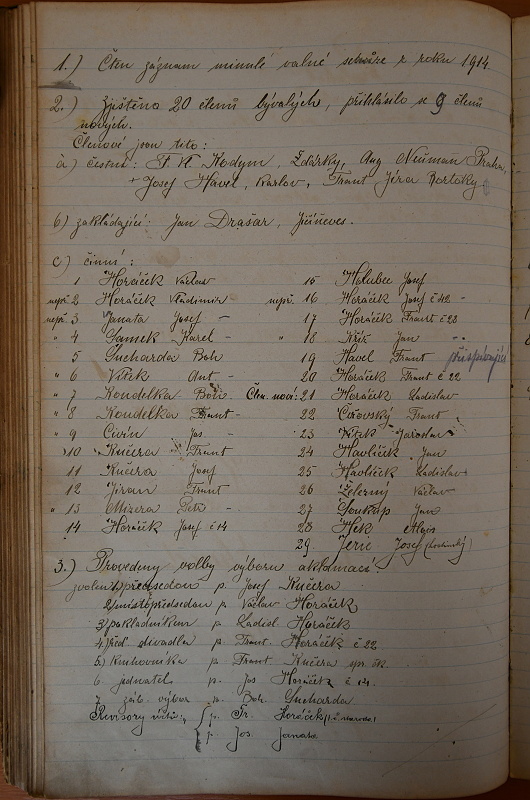 1.) Čten záznam minulé valné schůze z roku 1914
2.) Zjištěno 20 členů bývalých, přihlásilo se 9 členů
nových.
Členové jsou tito:
a) čestní: Hodym, Žďárský, Aug Neuman Praha,
+ Josef Havel, Karlov, Frant Jíra Bořtoky
b) zakládající: Jan Drašar, Jičíněves.
c) činní:
1 Horáček Václav
nepř. 2 Horáček Vladimír
nepř. 3 Janata Josef -
" 4 Samek Karel -
5 Sucharda Boh
" 6 Vítek Ant -
" 7 Koudelka Boh.
" 8 Koudelka Frant -
" 9 Civín Jos -
10 Kučera Frant
11 Kučera Josef
12 Jiran Frant
" 13 Mizera Petr -
14 Horáček Josef č 14
15 Holubec Josef
nepř. 16 Horáček Josef č 42 -
17 Horáček Frant č 28
" 18 Kříž Jan
19 Havel Frant přispívající
20 Horáček Frant č 22
Čle. noví: 21 Horáček Ladislav
22 Čeřovský Frant
23 Vítek Jaroslav
24 Havlíček Jan
25 Havlíček Ladislav
26 Železný Václav
27 Soukup Jan
28 Hek Alois
29. Jerie Josef
3.) Provedeny volby výboru aklamací:
zvoleni 1) předsedou p. Josef Kučera
2) místopředsedou p. Václav Horáček
3) pokladníkem p. Ladisl Horáček
4) řed. divadla p. Frant. Horáček č 22
5.) knihovníka p. Frant Kučera
6 jednatel p. Jos Horáček č 14.
7 záb. výbor p. Boh. Sucharda
Revisory účtů: p. Fr. Horáček
p. Jos. Janata